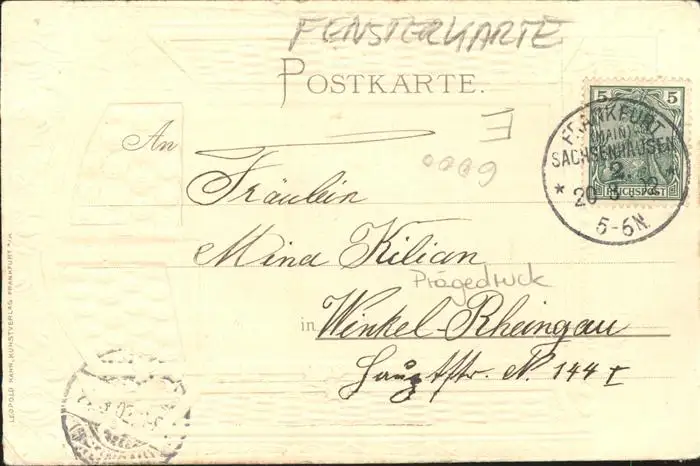 FENSTERKARTE
POSTKARTE.
5 5
REICHSPOST
FRANKFURT
(MAIN)
SACHSENHAUSEN
2.
5-6N.
An
E
0009
Fräulein
Mina Kilian
Prägedruck
in Winkel-Rheingau
Hauptstr. N. 144 I
LEOPOLD HAHN, KUNSTVERLAG FRANKFURT A/M